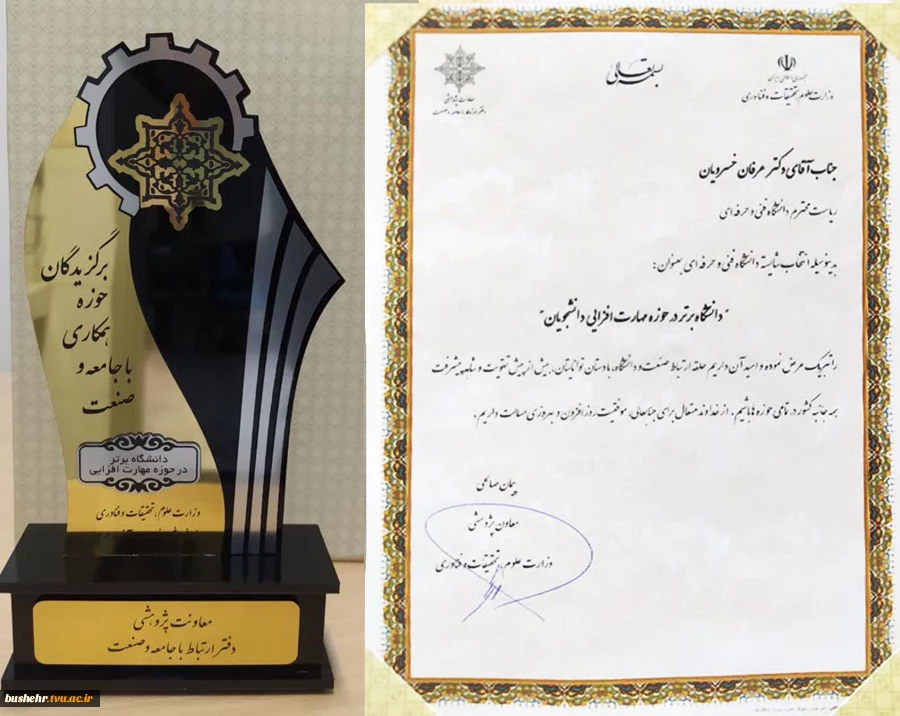 برگزیدگان
حوزه
همکاری
با جامعه و
صنعت
دانشگاه برتر
در حوزه مهارت افزایی
وزارت علوم، تحقیقات و فناوری
معاونت پژوهشی
دفتر ارتباط با جامعه و صنعت
bushehr.tvu.ac.ir
بسمه تعالی
جمهوری اسلامی ایران
وزارت علوم، تحقیقات و فناوری
معاونت پژوهشی
دفتر ارتباط با جامعه و صنعت
جناب آقای دکتر عرفان خسرویان
ریاست محترم دانشگاه فنی و حرفه ای
بدینوسیله انتخاب شایسته دانشگاه فنی و حرفه ای بعنوان:
"دانشگاه برتر در حوزه مهارت افزایی دانشجویان"
را تبریک عرض نموده و امید آن داریم حلقه ارتباط صنعت و دانشگاه، با دستان توانایتان، بیش از پیش تقویت و شاهد پیشرفت
همه جانبه کشور در تمامی حوزه ها باشیم. از خداوند متعال برای جنابعالی، موفقیت روز افزون و بهروزی مسالت داریم.
پیمان صالحی
معاون پژوهشی
وزارت علوم، تحقیقات و فناوری